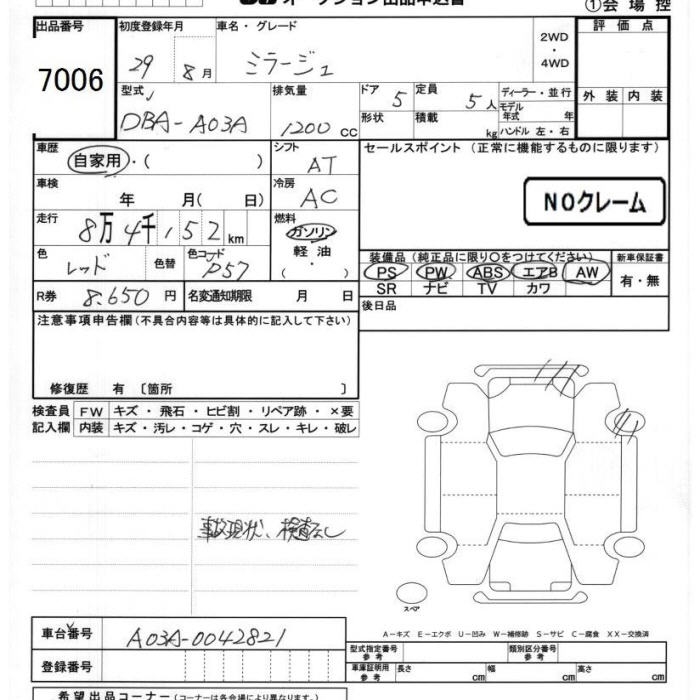 オークション出品申込書
①会場控
出品番号 初度登録年月 車名・グレード 評価点
7006 29 8月 ミラージュ 2WD・4WD
型式 排気量 ドア 定員 ディーラー・並行 外装 内装
DBA-A03A 1200cc 5 5人 モデル年式 年
形状 積載 kg ハンドル 左・右
車歴 シフト セールスポイント (正常に機能するものに限ります)
自家用・( ) AT
車検 冷房
年 月(日) AC NOクレーム
走行 燃料
8万4千152km ガソリン
軽油
・
色 色替 色コード 装備品(純正品に限り〇をつけてください) 新車保証書
レッド P57 PS PW ABS エアB AW 有・無
SR ナビ TV カワ
R券 8.650円 名変通知期限 月 日 後日品
注意事項申告欄(不具合内容等は具体的に記入して下さい)
修復歴 有〔箇所 〕
検査員 FW キズ・飛石・ヒビ割・リペア跡・×要
記入欄 内装 キズ・汚レ・コゲ・穴・スレ・キレ・破レ
事故現状、検査なし
スペア
A-キズ E-エクボ U-凹み W-補修跡 S-サビ C-腐食 XX-交換済
車台番号 A03A-0042821 型式指定番号 参考 類別区分番号 参考
登録番号 車庫証明用 参考 長さ cm 幅 cm 高さ cm
希望出品コーナー(コーナーは各会場により異なります。)